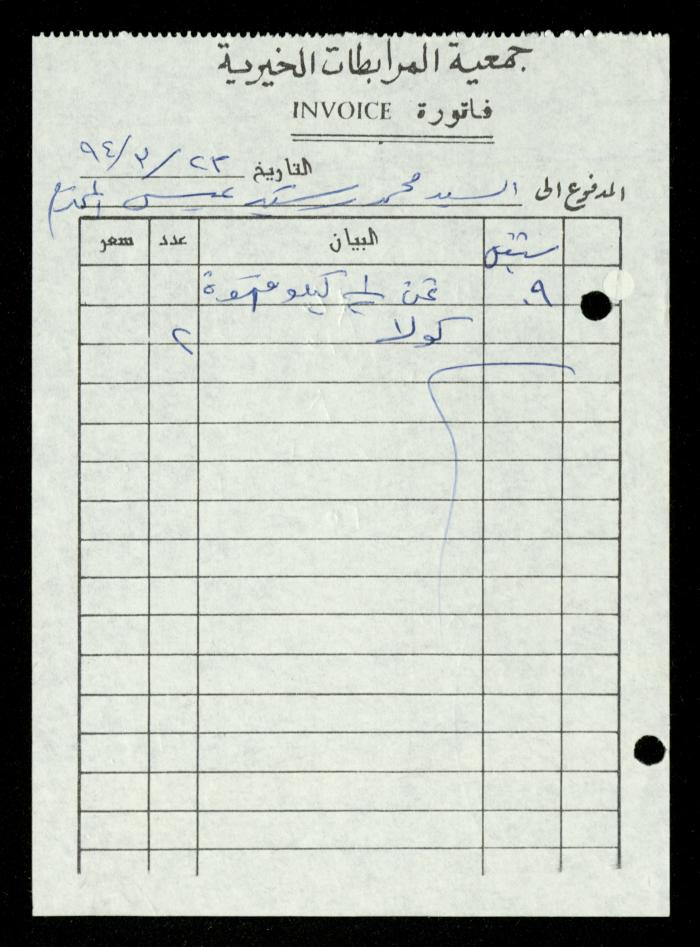 جمعية المرابطات الخيرية
فاتورة INVOICE
التاريخ ٢٣/٣/٩٤
المدفوع الى السيد محمد رشيد عيسى المحترم
البيان عدد سعر
٩. ثمن كيلو قهوة
كولا ٢